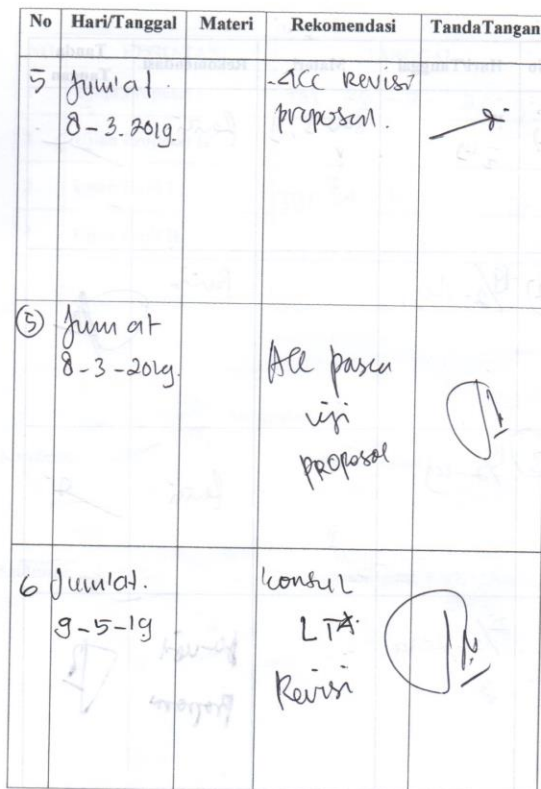 No Hari/Tanggal Materi Rekomendasi TandaTangan
5 Jum'at. - ACC Revisi
8-3.2019. proposal.
5 Jum at
8-3-2019. Acc pasca
uji
proposal
6 Jum'at. konsul
9-5-19 LTA
Revisi